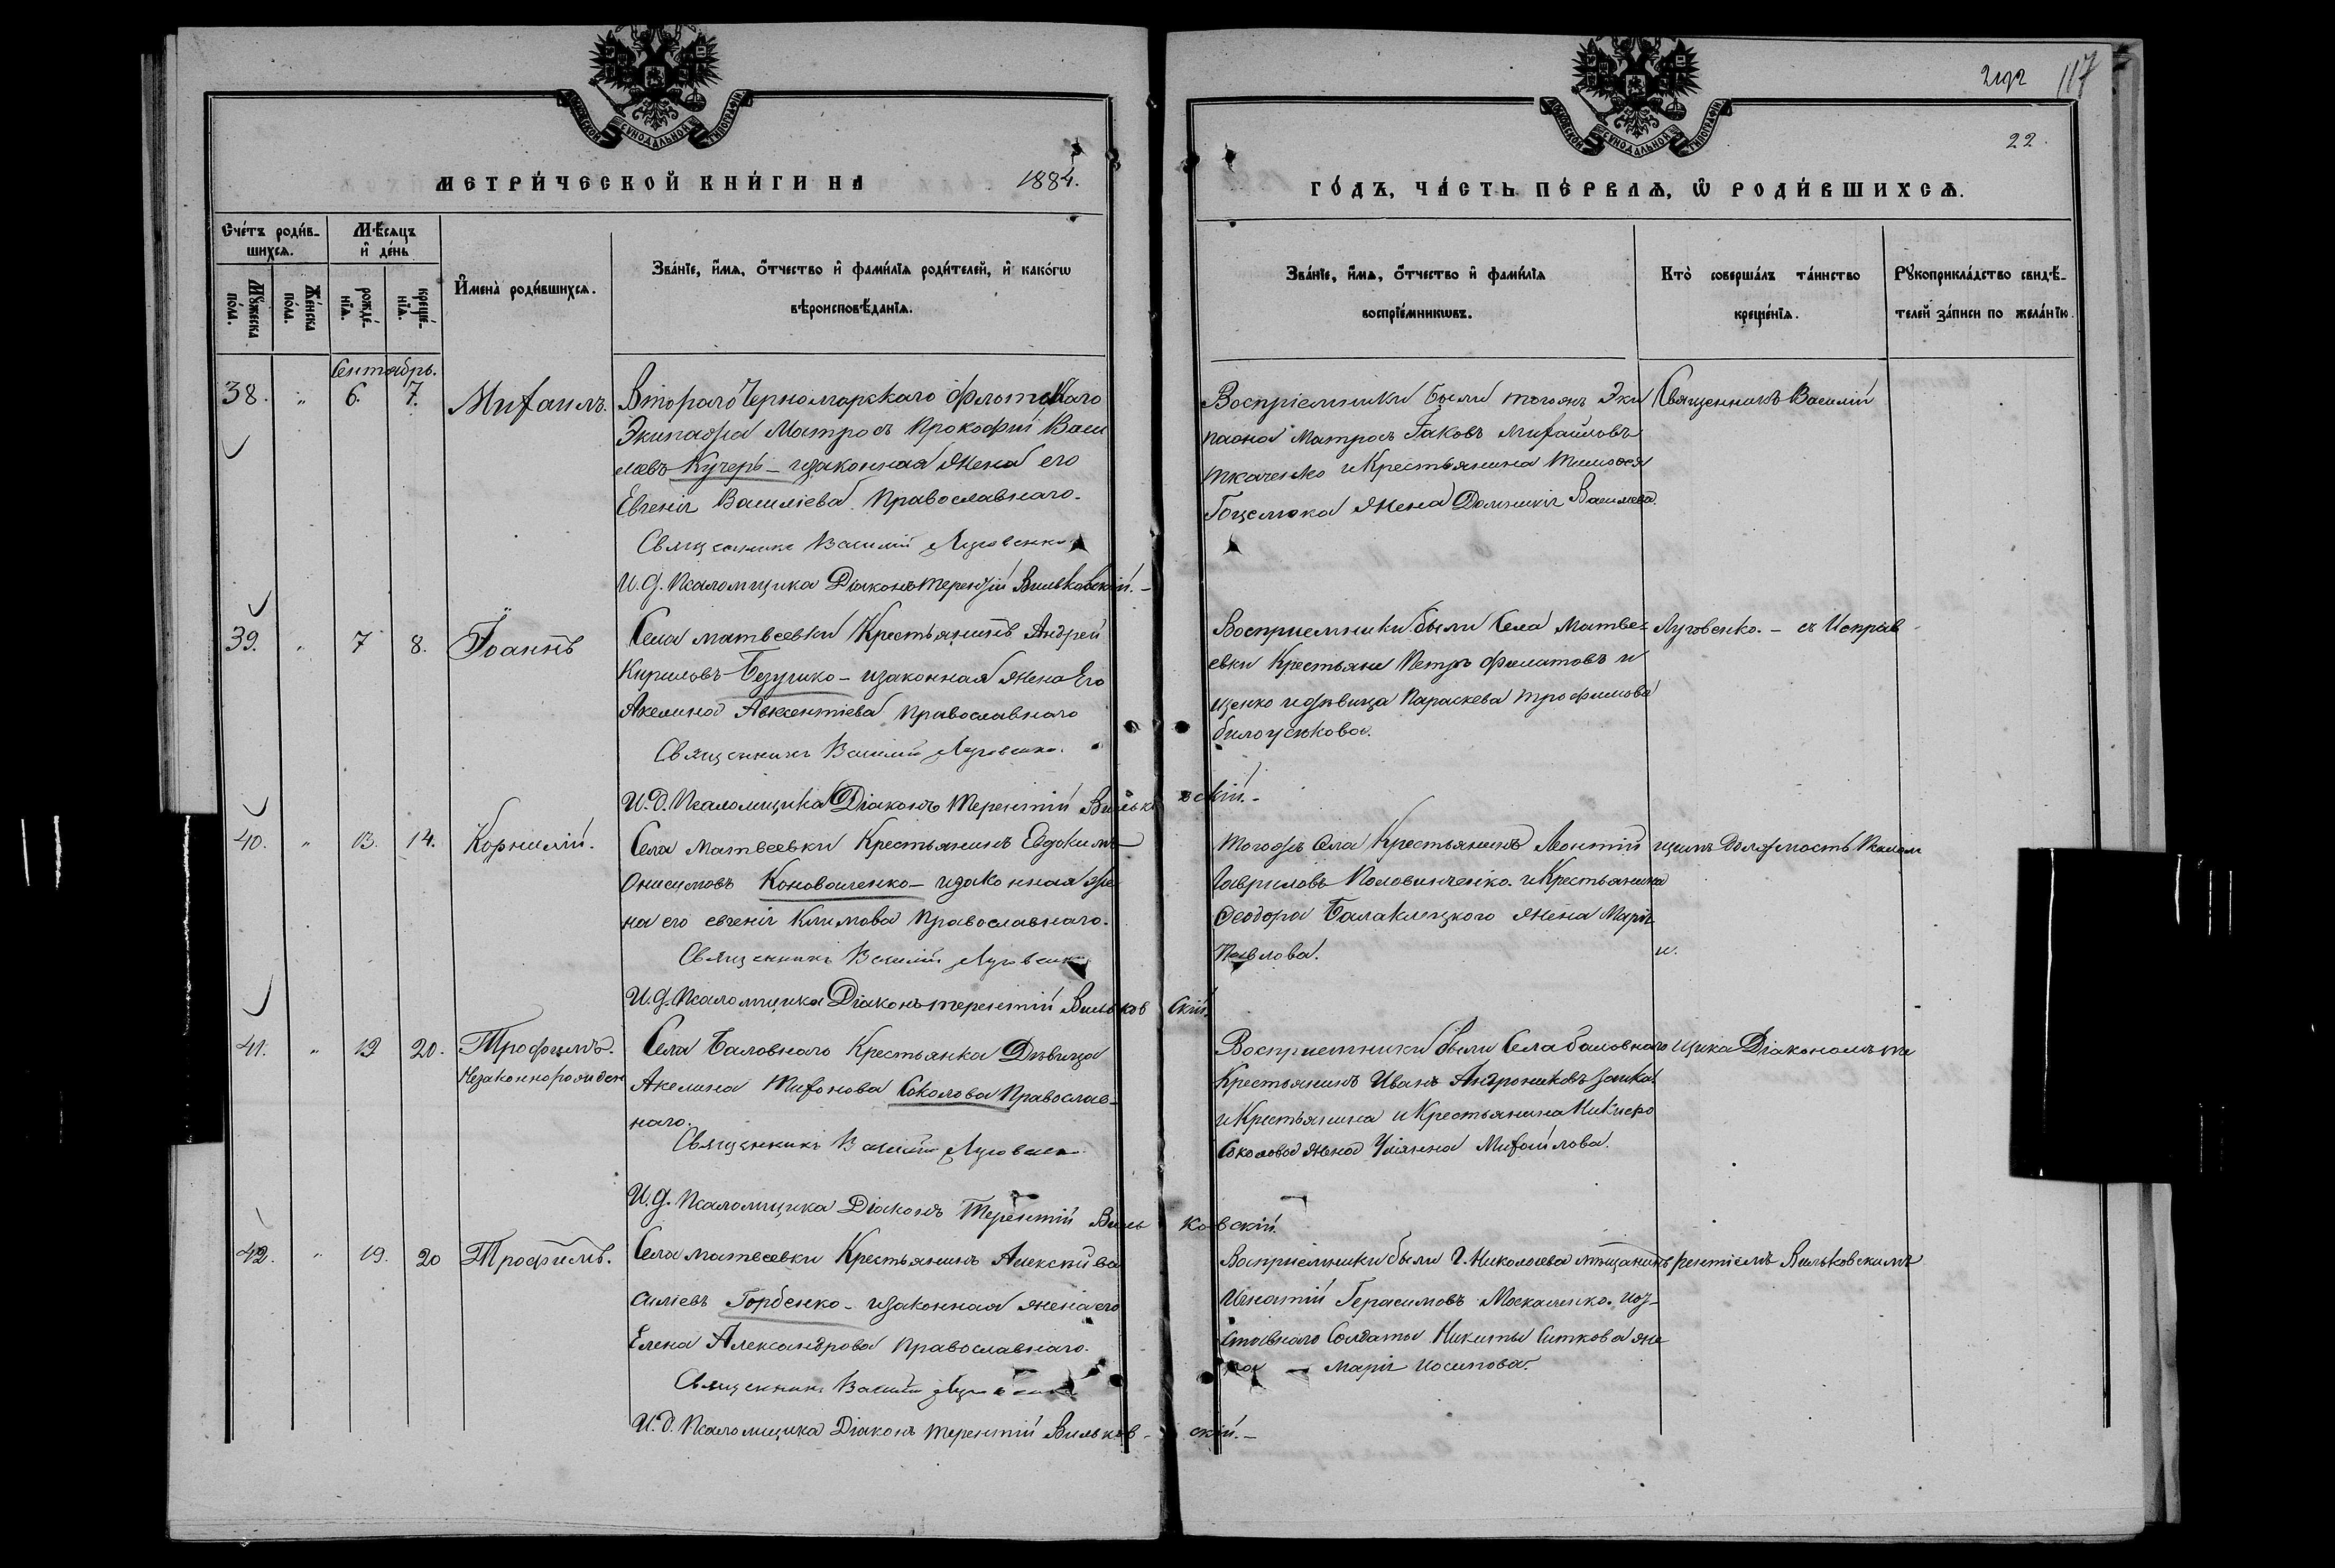 МОСКОВСКОЙ СѴНОДАЛЬНОЙ ТИПОГРАФІИ
МЕТРИ́ЧЕСКОЙ КНИ́ГИ НА 1884.
Сче́тъ роди́в-
шихсѧ.
Мѣ́сѧцъ
и҆ де́нь
Мꙋ́жеска по́ла.
Же́нска по́ла.
рожде́-
нїѧ.
креще́-
нїѧ.
И҆мена̀ роди́вшихсѧ.
Зва́нїе, и҆́мѧ, ѻ҆́тчество и҆ фами́лїѧ роди́телей, и҆ како́гѡ
вѣроисповѣ́данїѧ.
Сентябрь.
38. " 6. 7. Михаилъ.
Втораго Черноморскаго флотскаго
Экипажа Матросъ Прокофій Васи
левъ Кучеръ – изаконная жена его
Евгенія Василіева Православнаго.
Священникъ Василій Луговенко
И. д. Псаломщика Діаконъ Терентій Вильковскій. –
39. " 7 8. Іоаннъ
Села матвеевки Крестьянинъ Андрей
Кириловъ Безушко – изаконная жена Его
Акелина Авксентіева Православнаго
Священникъ Василій Луговенко.
И. д. Псаломщика Діаконъ Терентій Вильковскій. –
40. " 13. 14. Корнилій.
Села Матвеевки Крестьянинъ Евдокимъ
Онисимовъ Коноваленко – изаконная же
на его евгенія Климова Православнаго.
Священникъ Василій Луговенко
И. д. Псаломщика Діаконъ терентій Вильковскій.
41. " 19 20. Трофимъ.
Незаконнорожден
Села Баловнаго Крестьянка Дѣвица
Акелина Тихонова Соколова Православ-
наго.
Священникъ Василій Луговенко
И. д. Псаломщика Діаконъ Терентій Вильковскій.
42. " 19. 20 Трофимъ.
Села матвеевки Крестьянинъ Алексѣй Ва
силіевъ Горбенко – изаконная жена его
Елена Александрова Православнаго.
Священникъ Василій Луговенко
И. д. Псаломщика Діаконъ терентій Вильков-скій. –
117
22.
МОСКОВСКОЙ СѴНОДАЛЬНОЙ ТИПОГРАФІИ
ГО́ДЪ, ЧА́СТЬ ПЕ́РВАѦ, Ѽ РОДИ́ВШИХСѦ.
Зва́нїе, и҆́мѧ, ѻ҆́тчество и҆ фами́лїѧ
воспрїе́мникѡвъ.
Кто̀ соверша́лъ та́инство
креще́нїѧ.
Рꙋкоприкла́дство свидѣ́-
телей за́писи по жела́нїю.
Воспріемники были тогожъ Эки
пажа Матросъ Іаковъ Михайловъ
Ткаченко и Крестьянина Тимофея
Гоцелюка жена Домникія Василева.
Воспріемники были Села Матве-
евки Крестьяне Петръ Филатовъ и
щенко и дѣвица Параскева Трофимова
билоусикова.
Тогожъ Села Крестьянинъ Леонтій
Гавриловъ Половинченко. и Крестьянина
Феодора Балаклецкого жена Марія
Павлова.
Воспріемники были Села баловнаго
Крестьянинъ Иванъ Андрониковъ Заика
и Крестьянина и Крестьянина Никифо
Соколова жена Уліянна Михайлова.
Воспріемники были Г. Николаева мѣщанинъ
Игнатій Герасимовъ Москаленко. и от-
ставнаго Солдата Никиты Ситкова же
на – Марія Иосипова.
Священникъ Василій
Луговенко. – съ Исправ
ляющимъ Должность Псалом
щика Діакономъ Те
рентіемъ Вильковскимъ